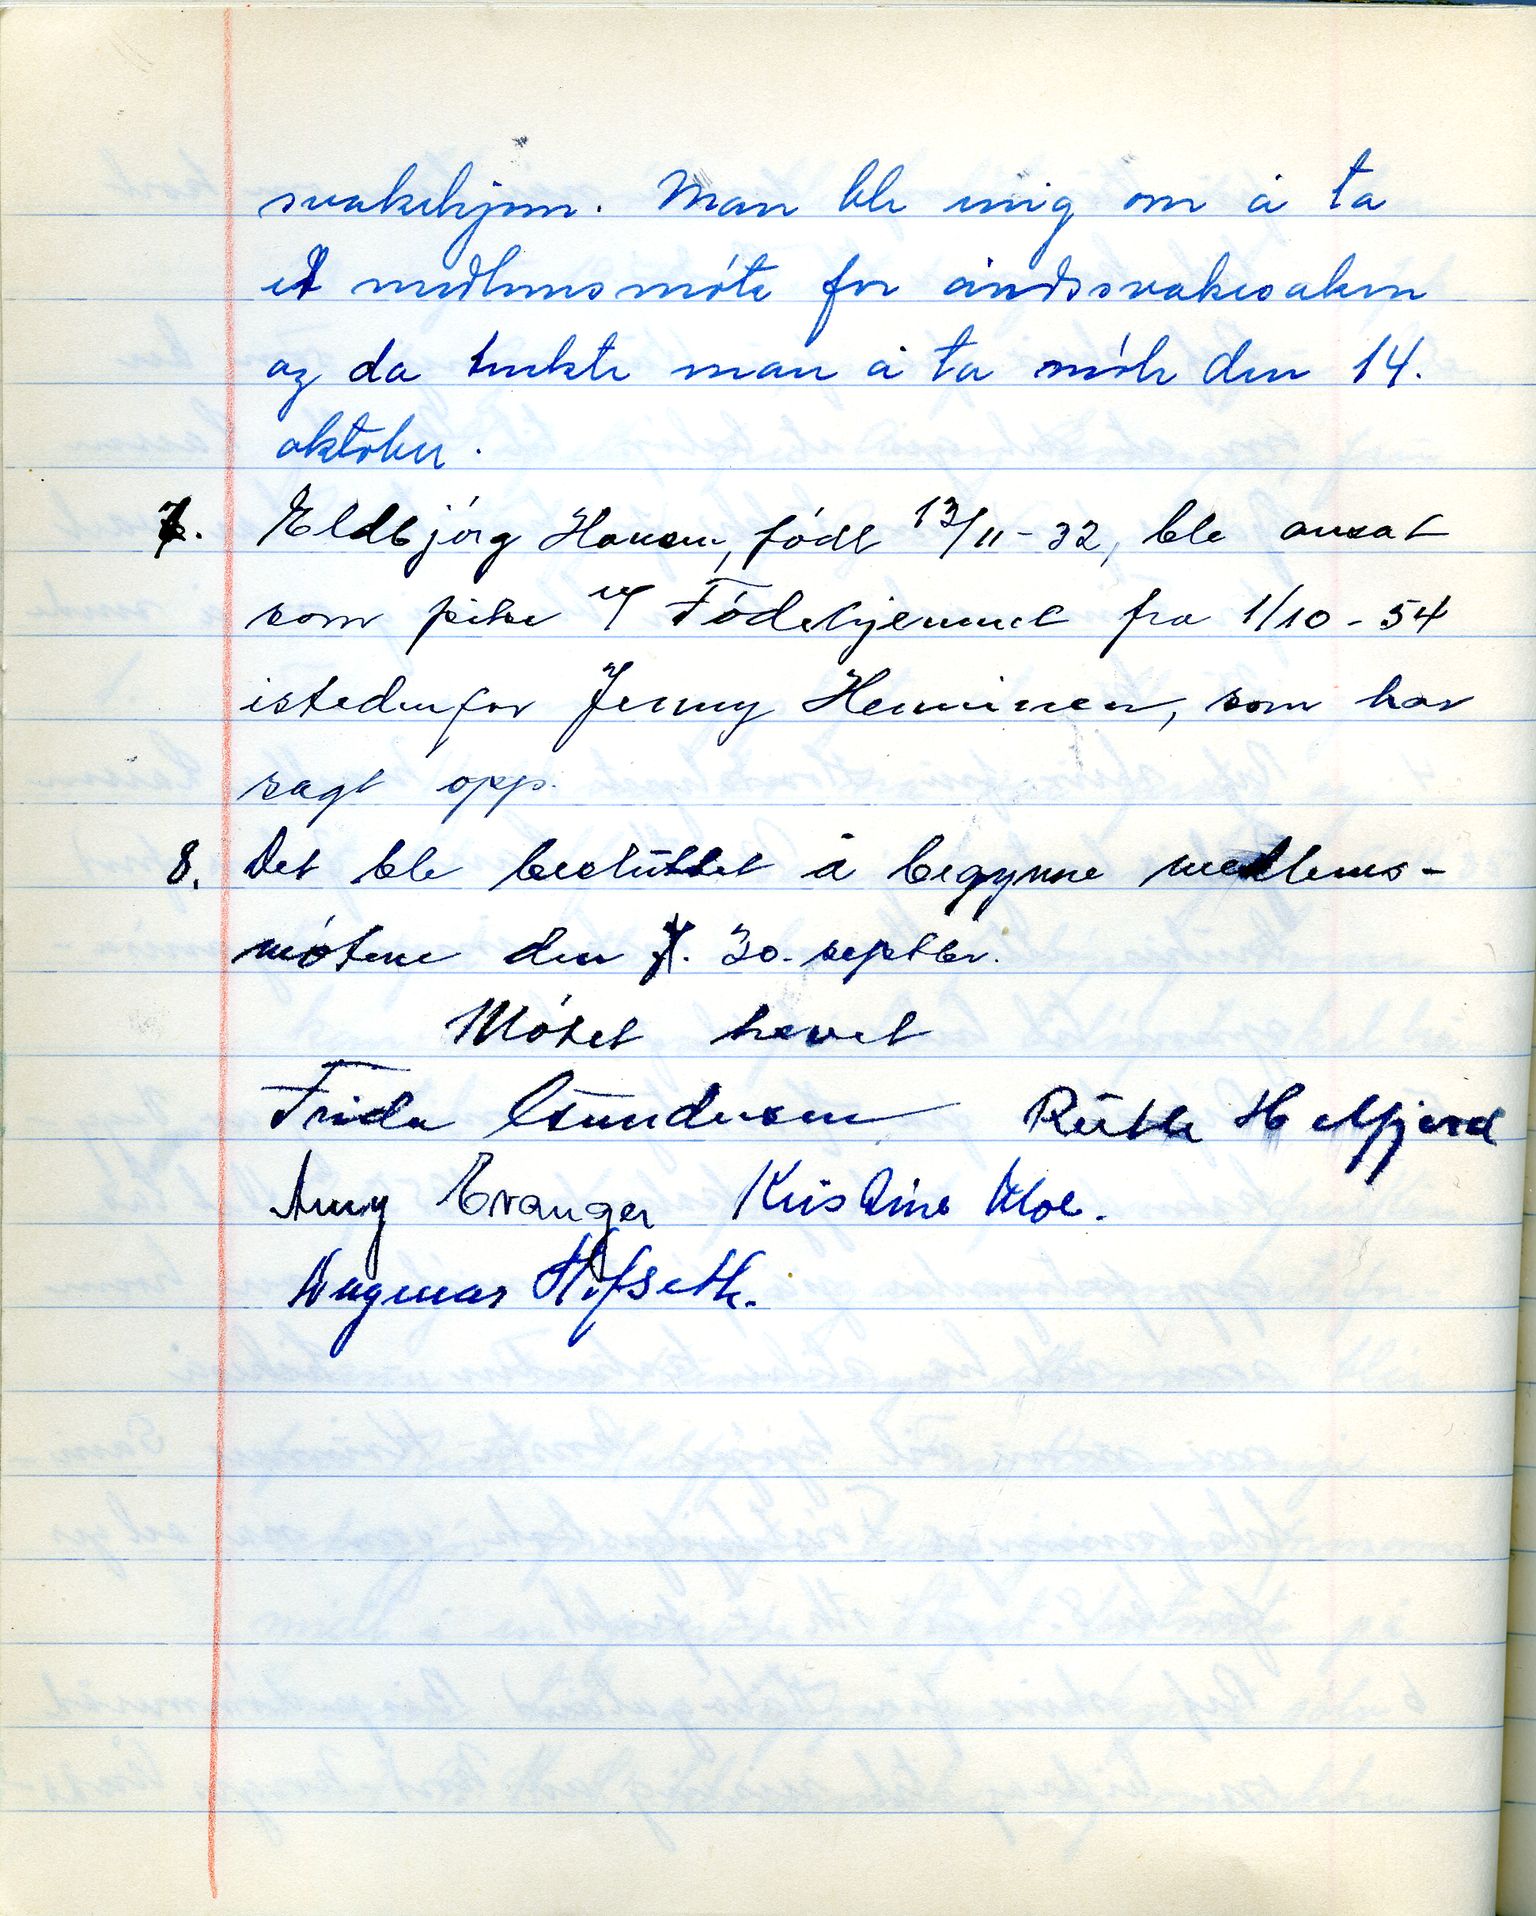 svakehjem. Man ble enig om å ta
et medlemsmøte for åndssvakesaken
og da tenkte man å ta møte den 14.
oktober.
7. Eldbjørg Hansen, født 13/11-32, ble ansat
som pike v/ Fødehjemmet fra 1/10-54
istedenfor Jenny Henninen, som har
sagt opp.
8. Det ble besluttet å begynne medlems-
møtene den 30. septbr.
Møtet hevet
Frida Gundersen Ruth H Mfjord
Amy Evanger Kristine Moe.
Dagmar Hofseth.